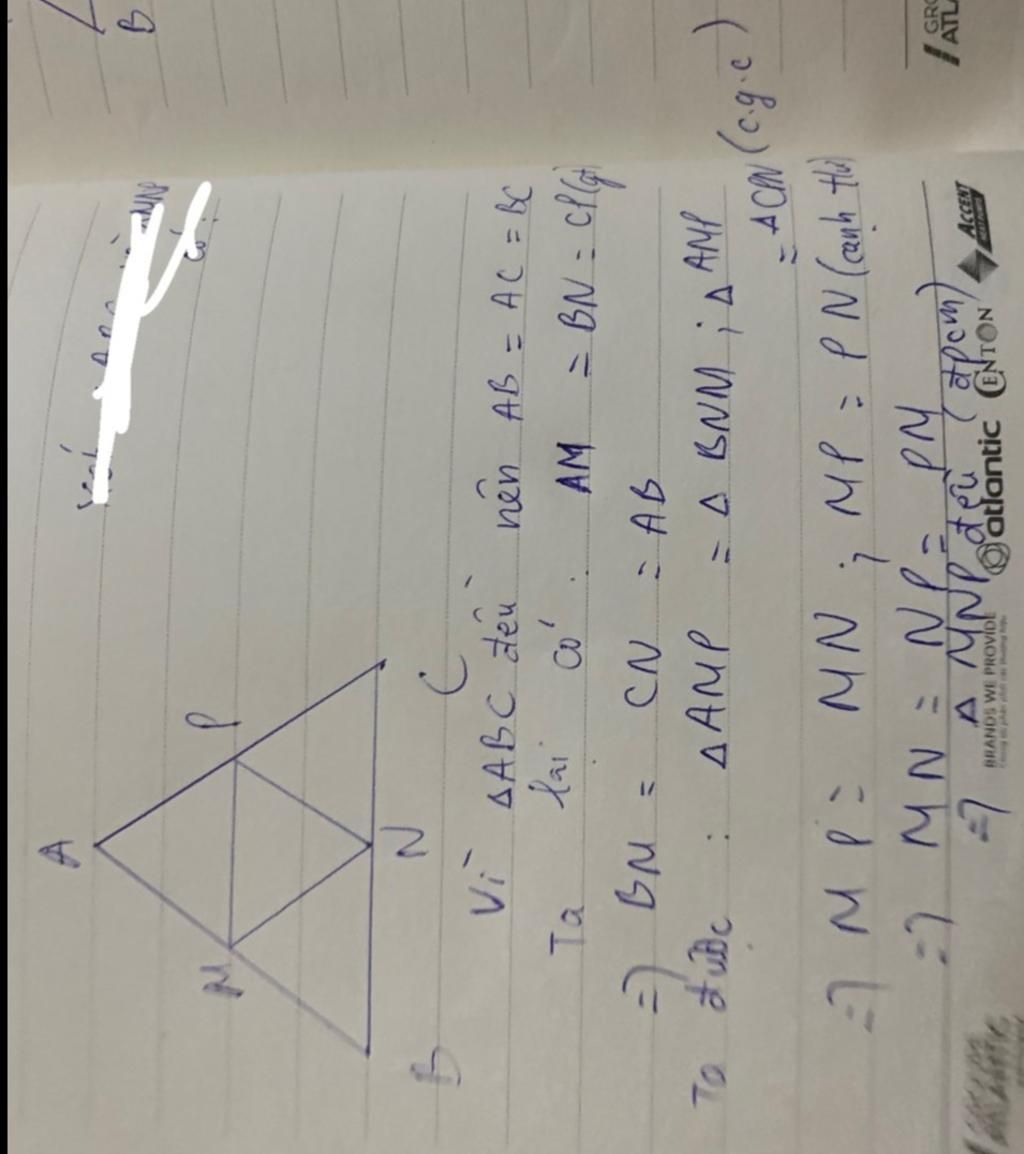 B
A
M
P
B
N
C
Vì ΔABC đều nên AB = AC = BC
Ta lại có : AM = BN = CP (gt)
=> BM = CN = AB
Ta được : ΔAMP = ΔBNM ; ΔAMP
= ΔCPN (c.g.c)
=> MP = MN ; MP = PN (cạnh
=> MN = NP = PM
=> ΔMNP đều (đpcm)
BRANDS WE PROVIDE
atlantic
CENTON
ACCENT